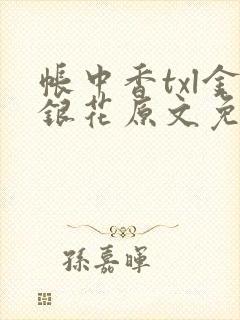 帳中香txl金
銀花原文免
孫嘉暉